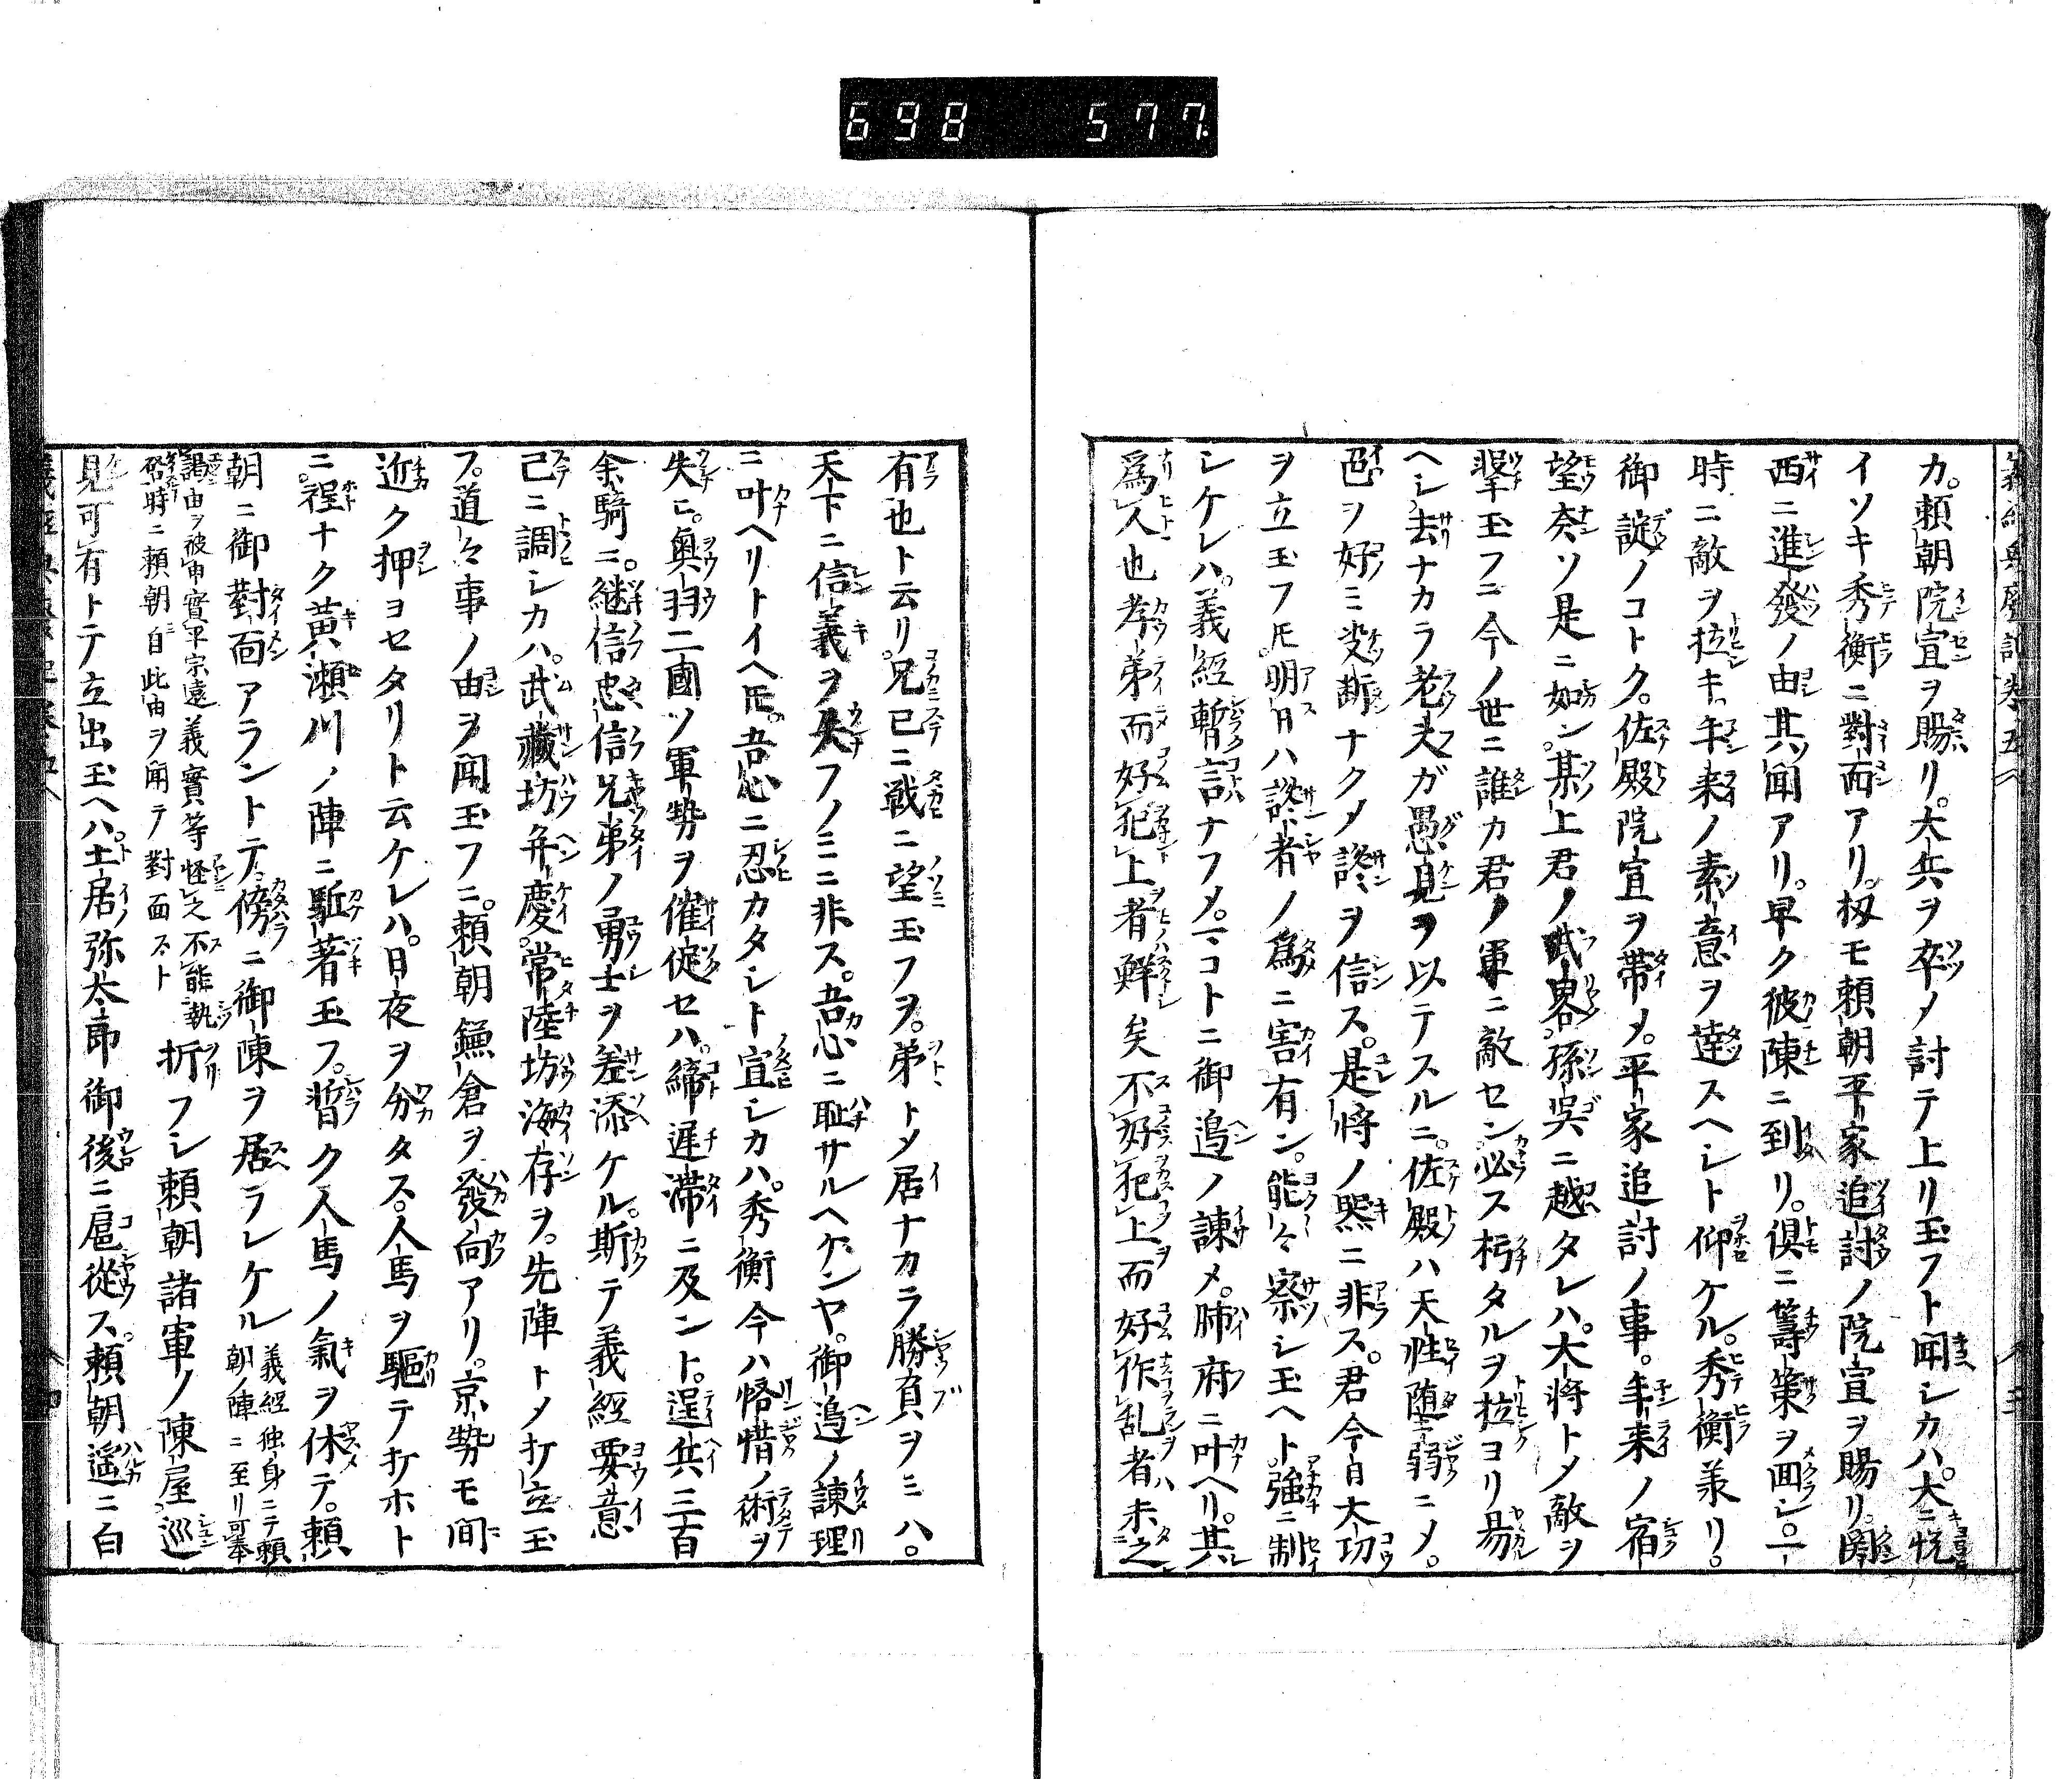 698 577
カ。頼朝院宣ヲ賜リ。大兵ヲ卒メ討テ上リ玉フト聞シカハ。大ニ悦
イソキ秀衡ニ對面アリ。扨モ頼朝平家追討ノ院宣ヲ賜リ。関
西ニ進發ノ由其聞アリ。早ク彼陳ニ到リ。倶ニ籌策ヲ囬シ。一
時ニ敵ヲ拉キ。年来ノ素意ヲ達スヘシト仰ケル。秀衡羕リ。
御諚ノコトク。佐殿院宣ヲ帯メ。平家追討ノ事。年来ノ宿
望奈ソ是ニ如ン。某上君ノ武畧。孫呉ニ越タレハ。大将トメ敵ヲ
撃玉フニ今ノ世ニ誰カ君ノ軍ニ敵セン必ス朽タルヲ拉ヨリ易
ヘシ去ナカラ老夫ガ愚見ヲ以テスルニ。佐殿ハ天性堕弱ニメ。
色ヲ好ミ决断ナクメ讒ヲ信ス。是将ノ器ニ非ス。君今自大功
ヲ立玉フ𪜈明日ハ讒者ノ為ニ害有ン。能々察シ玉ヘト。強ニ制
シケレハ。義經暫言ナフメ。一コトニ御邉ノ諌メ。肺府ニ叶ヘリ。其
為人也孝弟而好犯上者鮮矣不好犯上而好作乱者未之
有也ト云リ。兄已ニ戦ニ望玉フヲ。弟トメ居ナカラ勝負ヲミハ。
天下ニ信義ヲ失フノミニ非ス。吾心ニ恥サルヘケンヤ。御邉ノ諌理
ニ叶ヘリトイヘ𪜈。吾心ニ忍カタシト宣シカハ。秀衡今ハ悋惜ノ術ヲ
失ヒ。奥羽二國ソ軍勢ヲ催促セハ。締遅滞ニ及ント。逞兵三百
余騎ニ。継信忠信兄弟ノ勇士ヲ差添ケル。斯テ義經要意
己ニ調シカハ。武藏坊弁慶。常陸坊海存ヲ。先陣トメ打立玉
フ。道々事ノ由ヲ聞玉フニ。頼朝鎌倉ヲ發向アリ。京勢モ間
近ク押ヨセタリト云ケレハ。日夜ヲ分タス。人馬ヲ驅テ打ホト
ニ。程ナク黄瀬川ノ陣ニ駈著玉フ。暫ク人馬ノ氣ヲ休テ。頼
朝ニ御對面アラントテ。傍ニ御陳ヲ居ラレケル義經独身ニテ頼朝ノ陣ニ至リ可奉
謁由ヲ被申實平宗遠義實等怪之不能執啓時ニ頼朝自此由ヲ聞テ對面スト折フシ頼朝諸軍ノ陳屋巡
見可有トテ立出玉ヘハ。土居弥太郎御後ニ扈從ス。頼朝遥ニ白